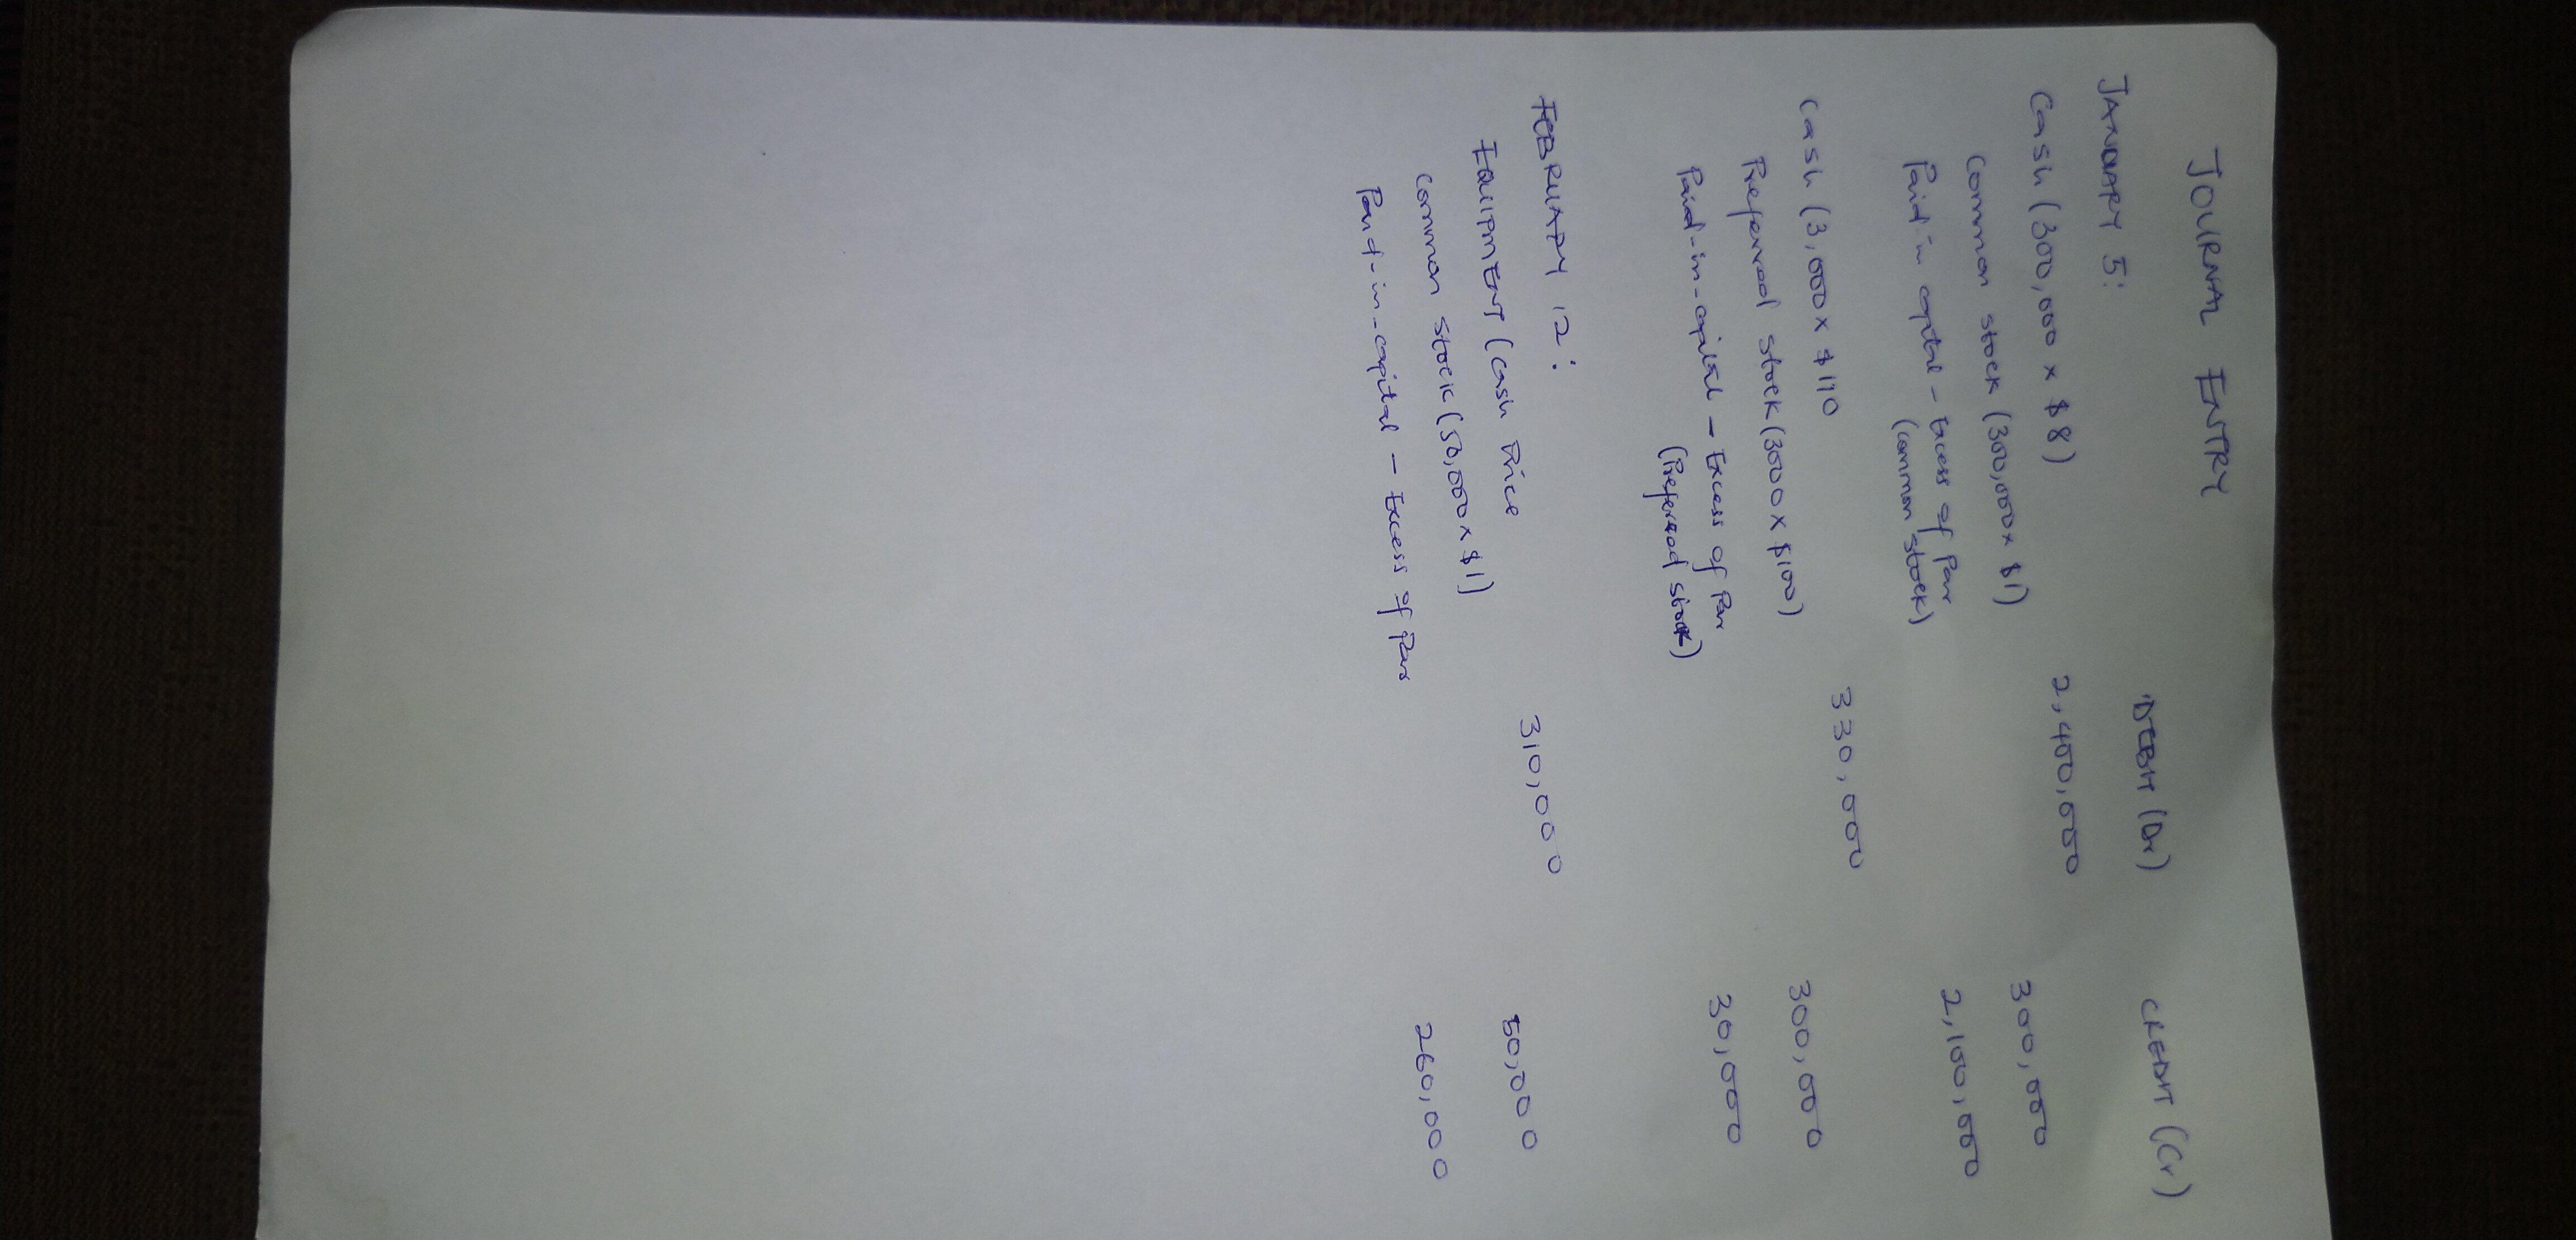 JOURNAL ENTRY
DEBIT (Dr) CREDIT (Cr)
JANUARY 5:
Cash (300,000 x $8) 2,400,000
Common stock (300,000 x $1) 300,000
Paid in capital - Excess of Par 2,100,000
(common stock)
Cash (3,000 x $110 330,000
Preferred stock (3000 x $100) 300,000
Paid-in-capital - Excess of Par 30,000
(Preferred stock)
FEBRUARY 12:
EQUIPMENT (Cash Price 310,000
Common stock (50,000 x $1) 50,000
Paid-in-capital - Excess of Par 260,000